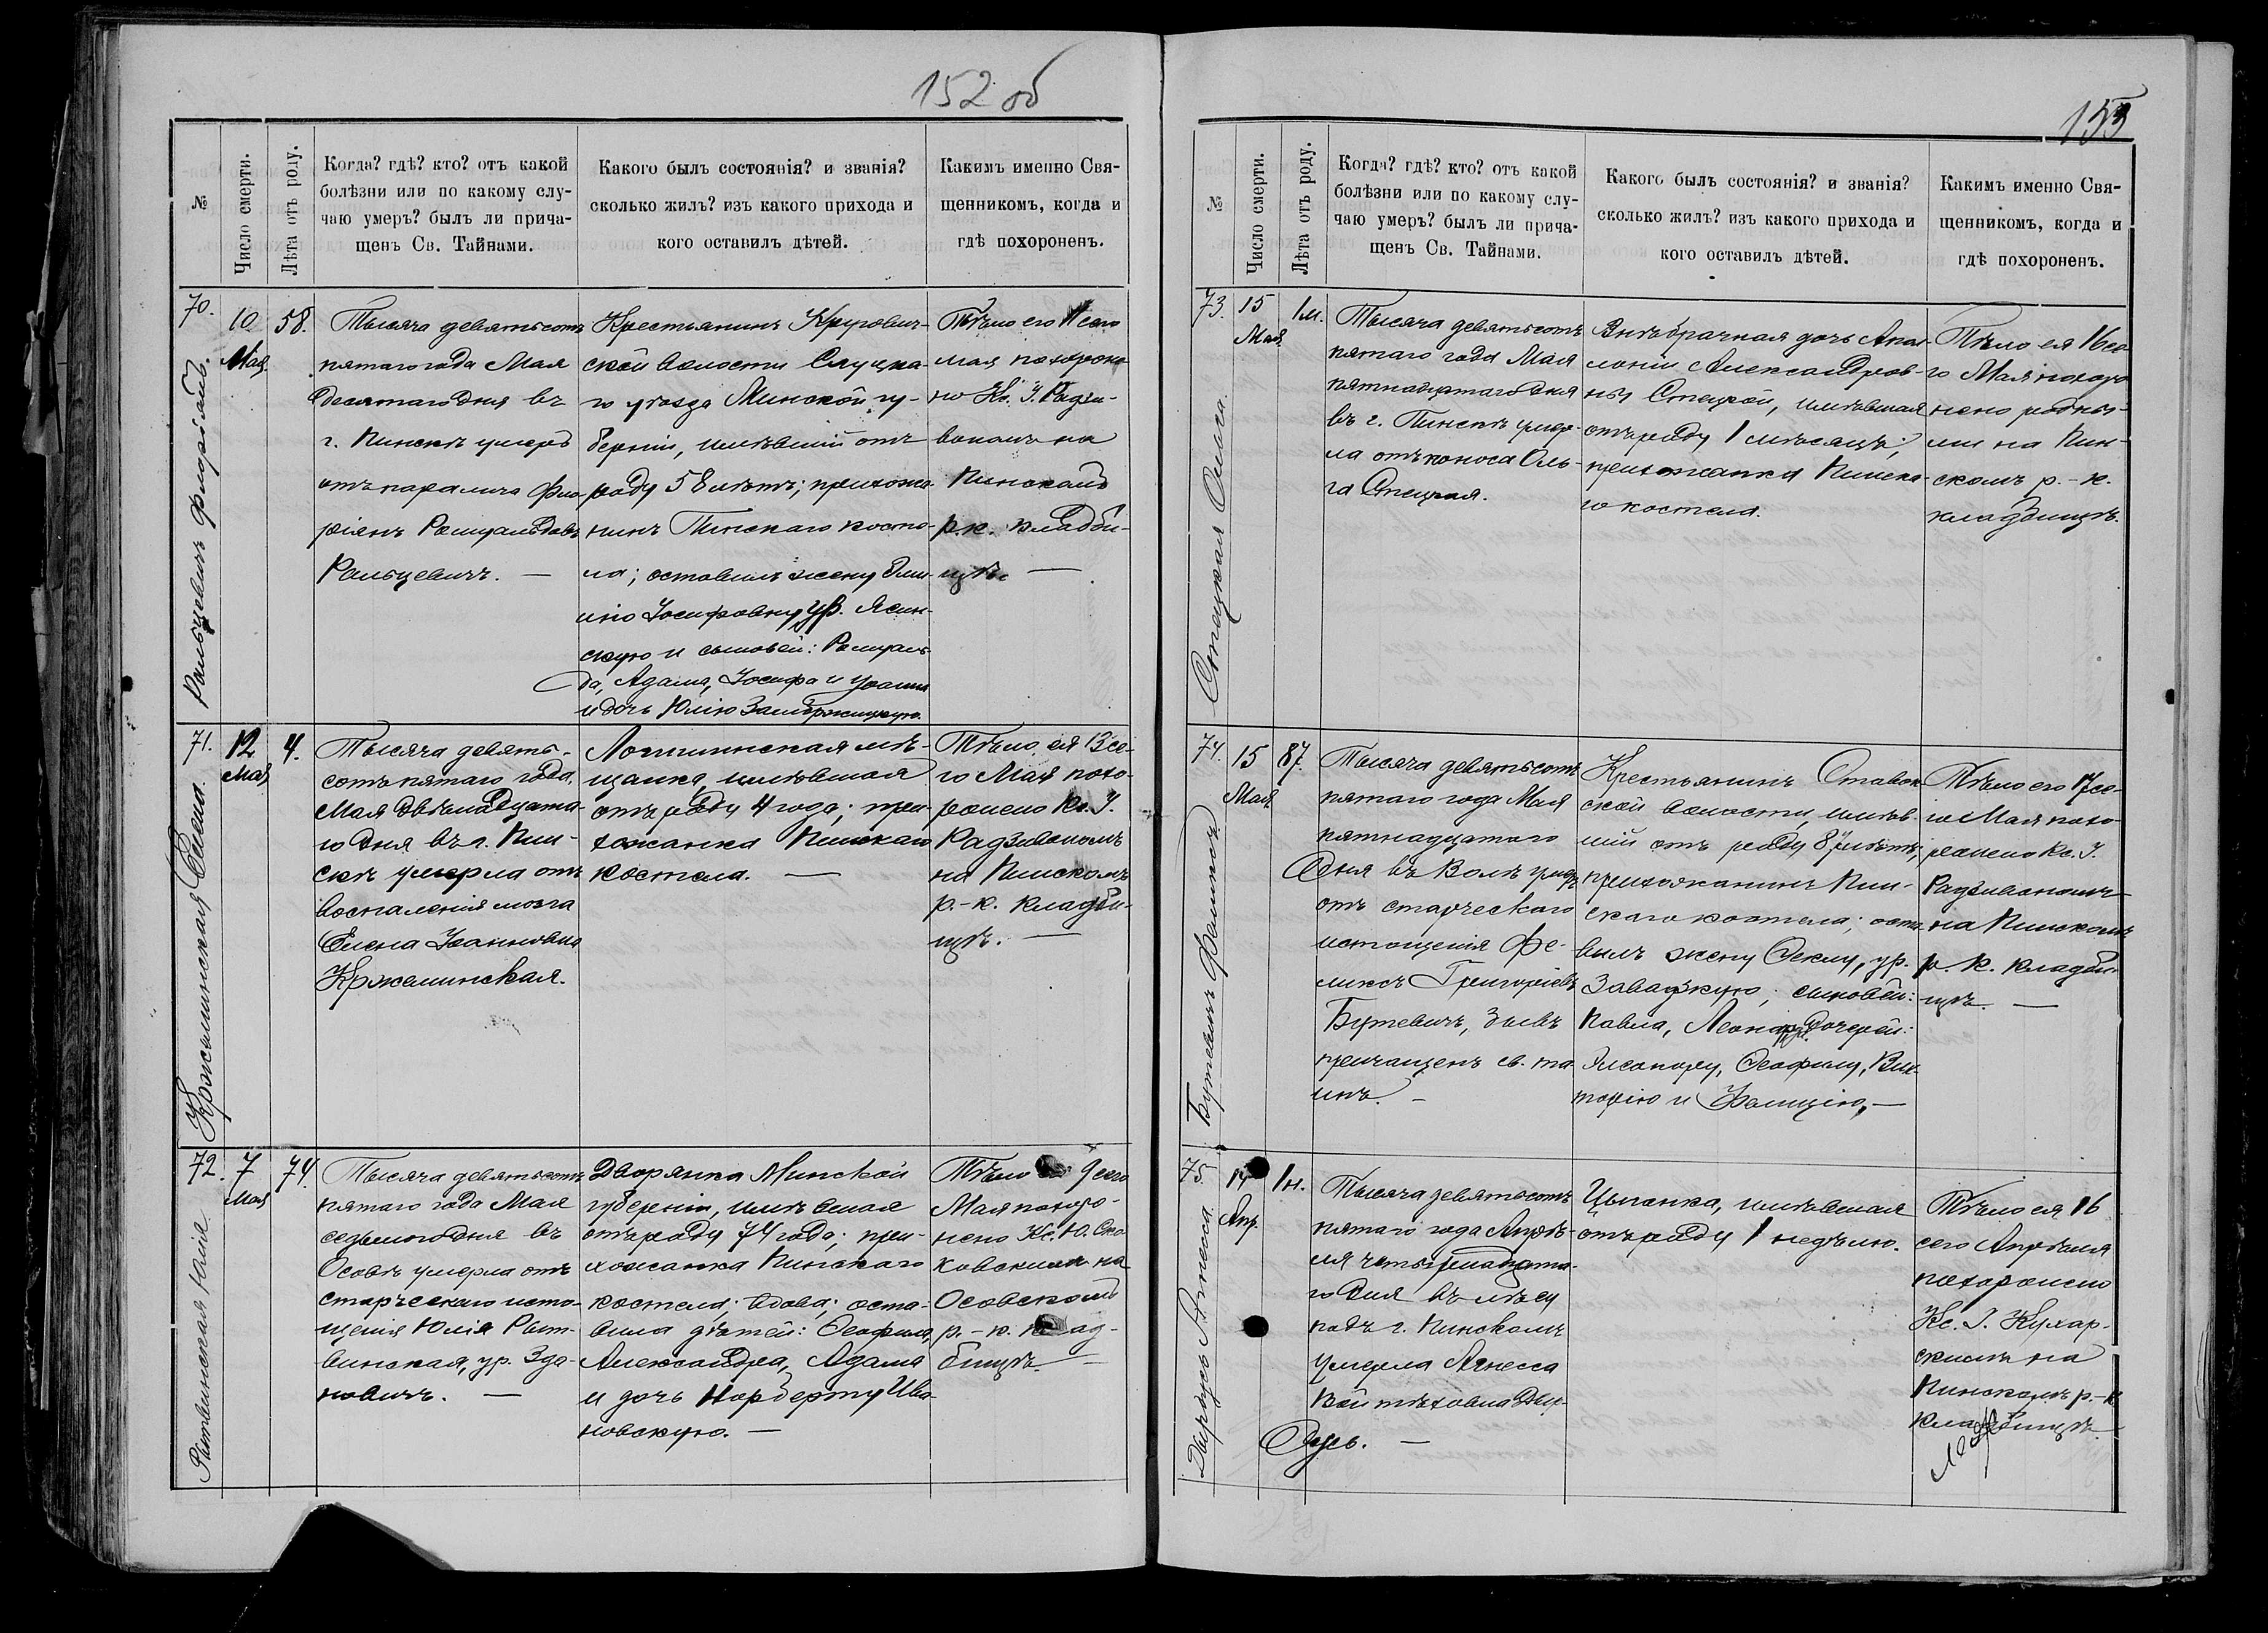 152 об
№
Число смерти.
Лѣта отъ роду.
Когда? гдѣ? кто? отъ какой
болѣзни или по какому слу-
чаю умеръ? былъ ли прича-
щенъ Св. Тайнами.
Какого былъ состоянія? и званія?
сколько жилъ? изъ какого прихода и
кого оставилъ дѣтей.
Какимъ именно Свя-
щенникомъ, когда и
гдѣ похороненъ.
70.
Ральцевичъ Флоріанъ.
10
Мая.
58.
Тысяча девятьсотъ
пятаго года Мая
десятаго дня въ
г. Пинскѣ умеръ
отъ паралича Фло-
ріянъ Ромуальдовъ
Ральцевичъ. —
Крестьянинъ Кругович-
ской волости Слуцка-
го уѣзда Минской гу-
берніи, имѣвшій отъ
роду 58 лѣтъ; прихожа-
нинъ Пинскаго косте-
ла; оставилъ жену Эми-
лію Іосифовну ур. Ясин-
скую и сыновей: Ромуаль-
да, Адама, Іосифа и Іоанна
и дочь Юлію
Тѣло его 11 сего
мая похороне-
но Кс. І. Радзи-
вономъ на
Пинскомъ
р.к. кладби-
щѣ. —
71.
Кржеминская Елена.
12
Мая
4.
Тысяча девять-
сотъ пятаго года
Мая двѣнадцата-
го дня въ г. Пин-
скѣ умерла отъ
воспаленія мозга
Елена Іоанновна
Кржеминская.
Логишинская мѣ-
щанка, имѣвшая
отъ роду 4 года; при-
хожанка Пинскаго
костела. —
Тѣло ея 13 се-
го Мая похо-
ронено Кс. І.
Радзивономъ
на Пинскомъ
р.-к. кладби-
щѣ. —
72.
Рытвинская Юлія
7
Мая
74.
Тысяча девятьсотъ
пятаго года Мая
седьмого дня въ
Осовѣ умерла отъ
старческаго исто-
щенія Юлія Рыт-
винская, ур. Зда-
новичъ. —
Дворянка Минской
губерніи, имѣвшая
отъ роду 74 года; при-
хожанка Пинскаго
костела; вдова; оста-
вила дѣтей: Ѳеофила,
Александра, Адама
и дочь Норберту Ива-
новскую. —
Тѣло 9 сего
Мая похоро-
нено Кс. Ю.
ковскимъ на
Осовскомъ
р.-к. клад-
бищѣ —
153
№
Число смерти.
Лѣта отъ роду.
Когда? гдѣ? кто? отъ какой
болѣзни или по какому слу-
чаю умеръ? былъ ли прича-
щенъ Св. Тайнами.
Какого былъ состоянія? и званія?
сколько жилъ? изъ какого прихода и
кого оставилъ дѣтей.
Какимъ именно Свя-
щенникомъ, когда и
гдѣ похороненъ.
73.
Стецкая Ольга.
15
Мая
1 м.
Тысяча девятьсотъ
пятаго года Мая
пятнадцатаго дня
въ г. Пинскѣ умер-
ла отъ поноса Оль-
га Стецкая.
Внѣбрачная дочь Апол-
лоніи Александров-
ны Стецкой, имѣвшая
отъ роду 1 мѣсяцъ;
прихожанка Пинска-
го костела.
Тѣло ея 16 се-
го Мая похоро-
нено родны-
ми на Пин-
скомъ р.-к.
кладбищѣ.
74.
Бутевичъ Феликсъ
15
Мая
87.
Тысяча девятьсотъ
пятаго года Мая
пятнадцатаго
дня въ Волѣ умеръ
отъ старческаго
истощенія Фе-
ликсъ Григоріевъ
Бутевичъ, бывъ
причащенъ св. та-
инъ. —
Крестьянинъ Ставок-
ской волости, имѣв-
шій отъ роду 87 лѣтъ;
прихожанинъ Пин-
скаго костела; оста-
вилъ жену Ѳеклу, ур.
Завадзкую; сыновей:
Павла, Леонарда дочерей:
Элеонору, Ѳеофилу, Вик-
торію и Фелицію, —
Тѣло его 17 се-
го Мая похо-
ронено Кс. І.
Радзивономъ
на Пинскомъ
р. к. кладби-
щѣ. —
75.
Дырдусь Агнесса
14
Апр.
1 н.
Тысяча девятьсотъ
пятаго года Апрѣ-
ля четырнадцата-
го дня въ лѣсу
подъ г. Пинскомъ
умерла Агнесса
Войтѣховна Дыр-
дусь. —
Цыганка, имѣвшая
отъ роду 1 недѣлю.
Тѣло ея 16
сего Апрѣля
похоронено
Кс. І. Кухар-
скимъ на
Пинскомъ р.-к.
кладбищѣ